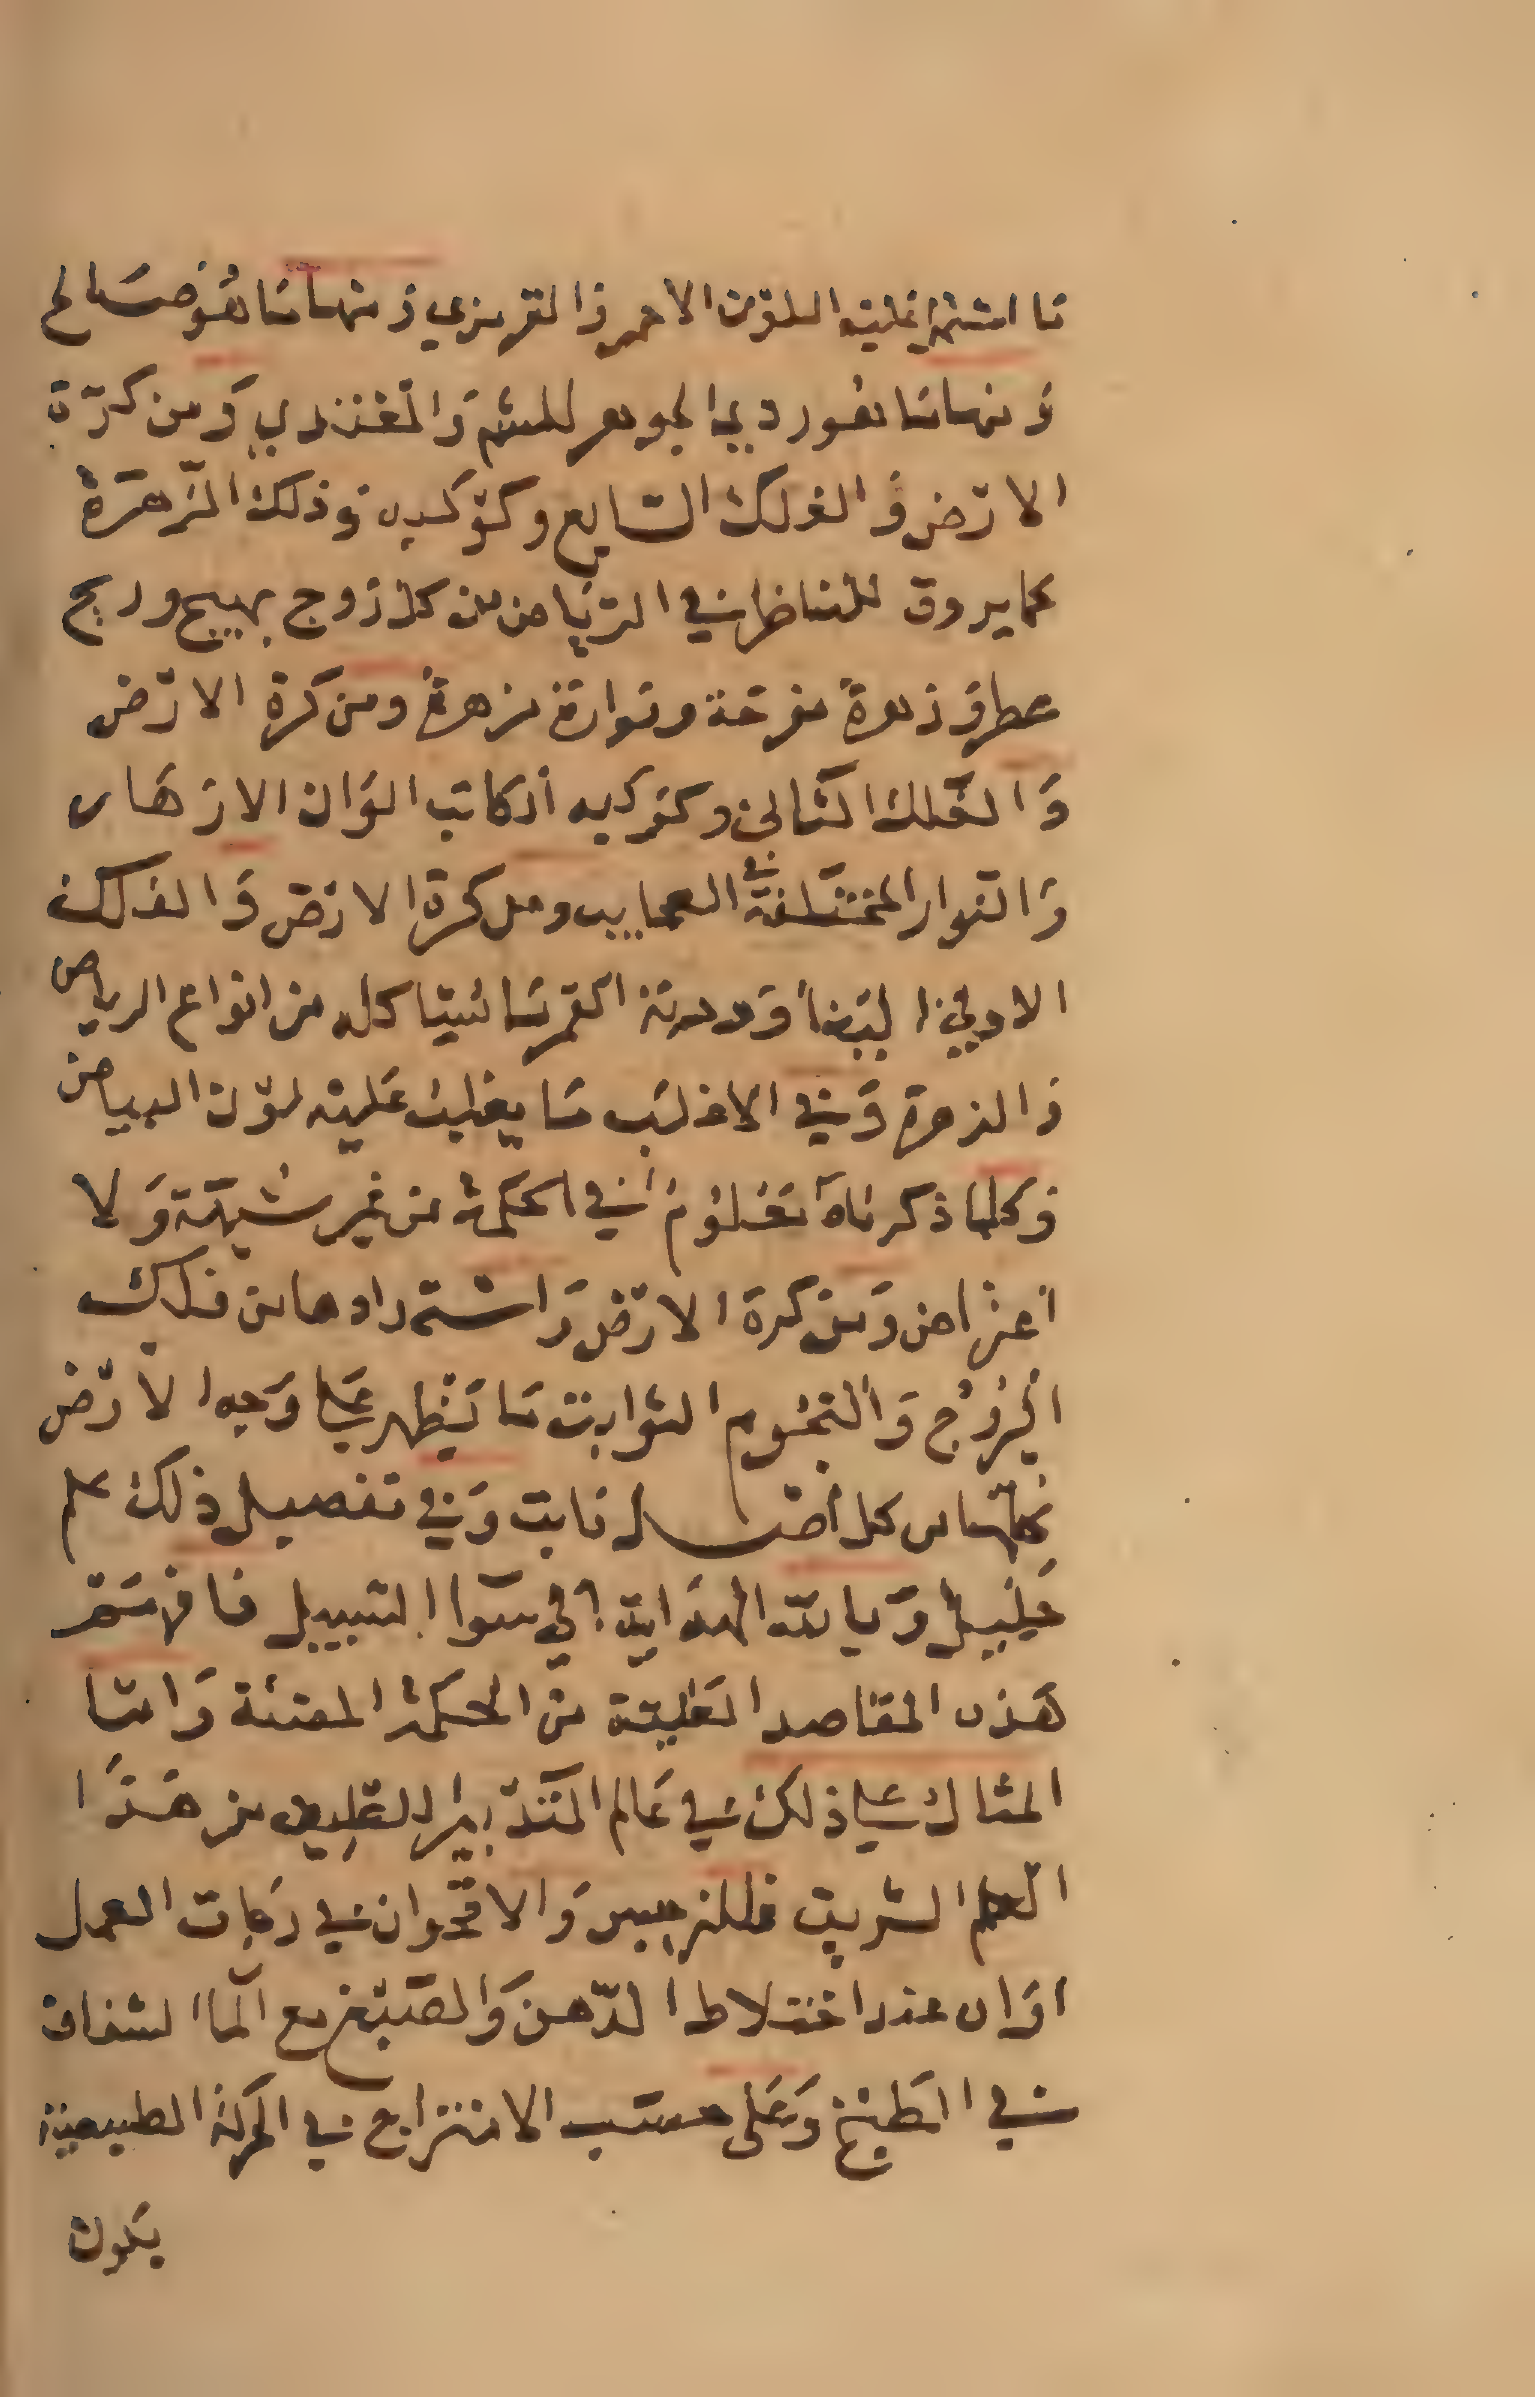 ما اشتمل عليه اللون الاحمر والقرمزي ومنها ما هو صالح
ومنها ما هو ردي الجوهر للشم والمغتذي ومن كرة
الارض والفلك السابع وكوكبه وذلك الزهرة
مما يروق للناظر في الرياض من كل زوج بهيج وريح
عطر وزهرة مفرحة ونوارة مزهرة ومن كرة الارض
والفلك الثاني وكوكبه الكاتب الوان الازهار
والنوار المختلفة في العجايب ومن كرة الارض والفلك
الاول ايضا وهو القمر سائيتا كله من انواع الرياض
والزهرة وفي الاغلب ما يغلب عليه لون البياض
وكلما ذكرناه معلوم في الحكمة من غير شبهة ولا
اعتراض ومن كرة الارض واستمدادها من فلك
البروج والنجوم الثوابت ما يظهر على وجه الارض
كلها من كل اصل نابت وفي تفصيل ذلك علم
جليل وبالله الهداية الى سوا السبيل فافهم
هذه المقاصد العلية من الحكمة المتقنة واما
المثال على ذلك في عالم التدبير العلمي من هذا
العلم الشريف فللنرجس والاقحوان في درجات العمل
اوان عند اختلاط الدهن والصبغ مع الما الشفاف
في الطبخ وعلى حسب الامتزاج في الحركة الطبيعية
يكون